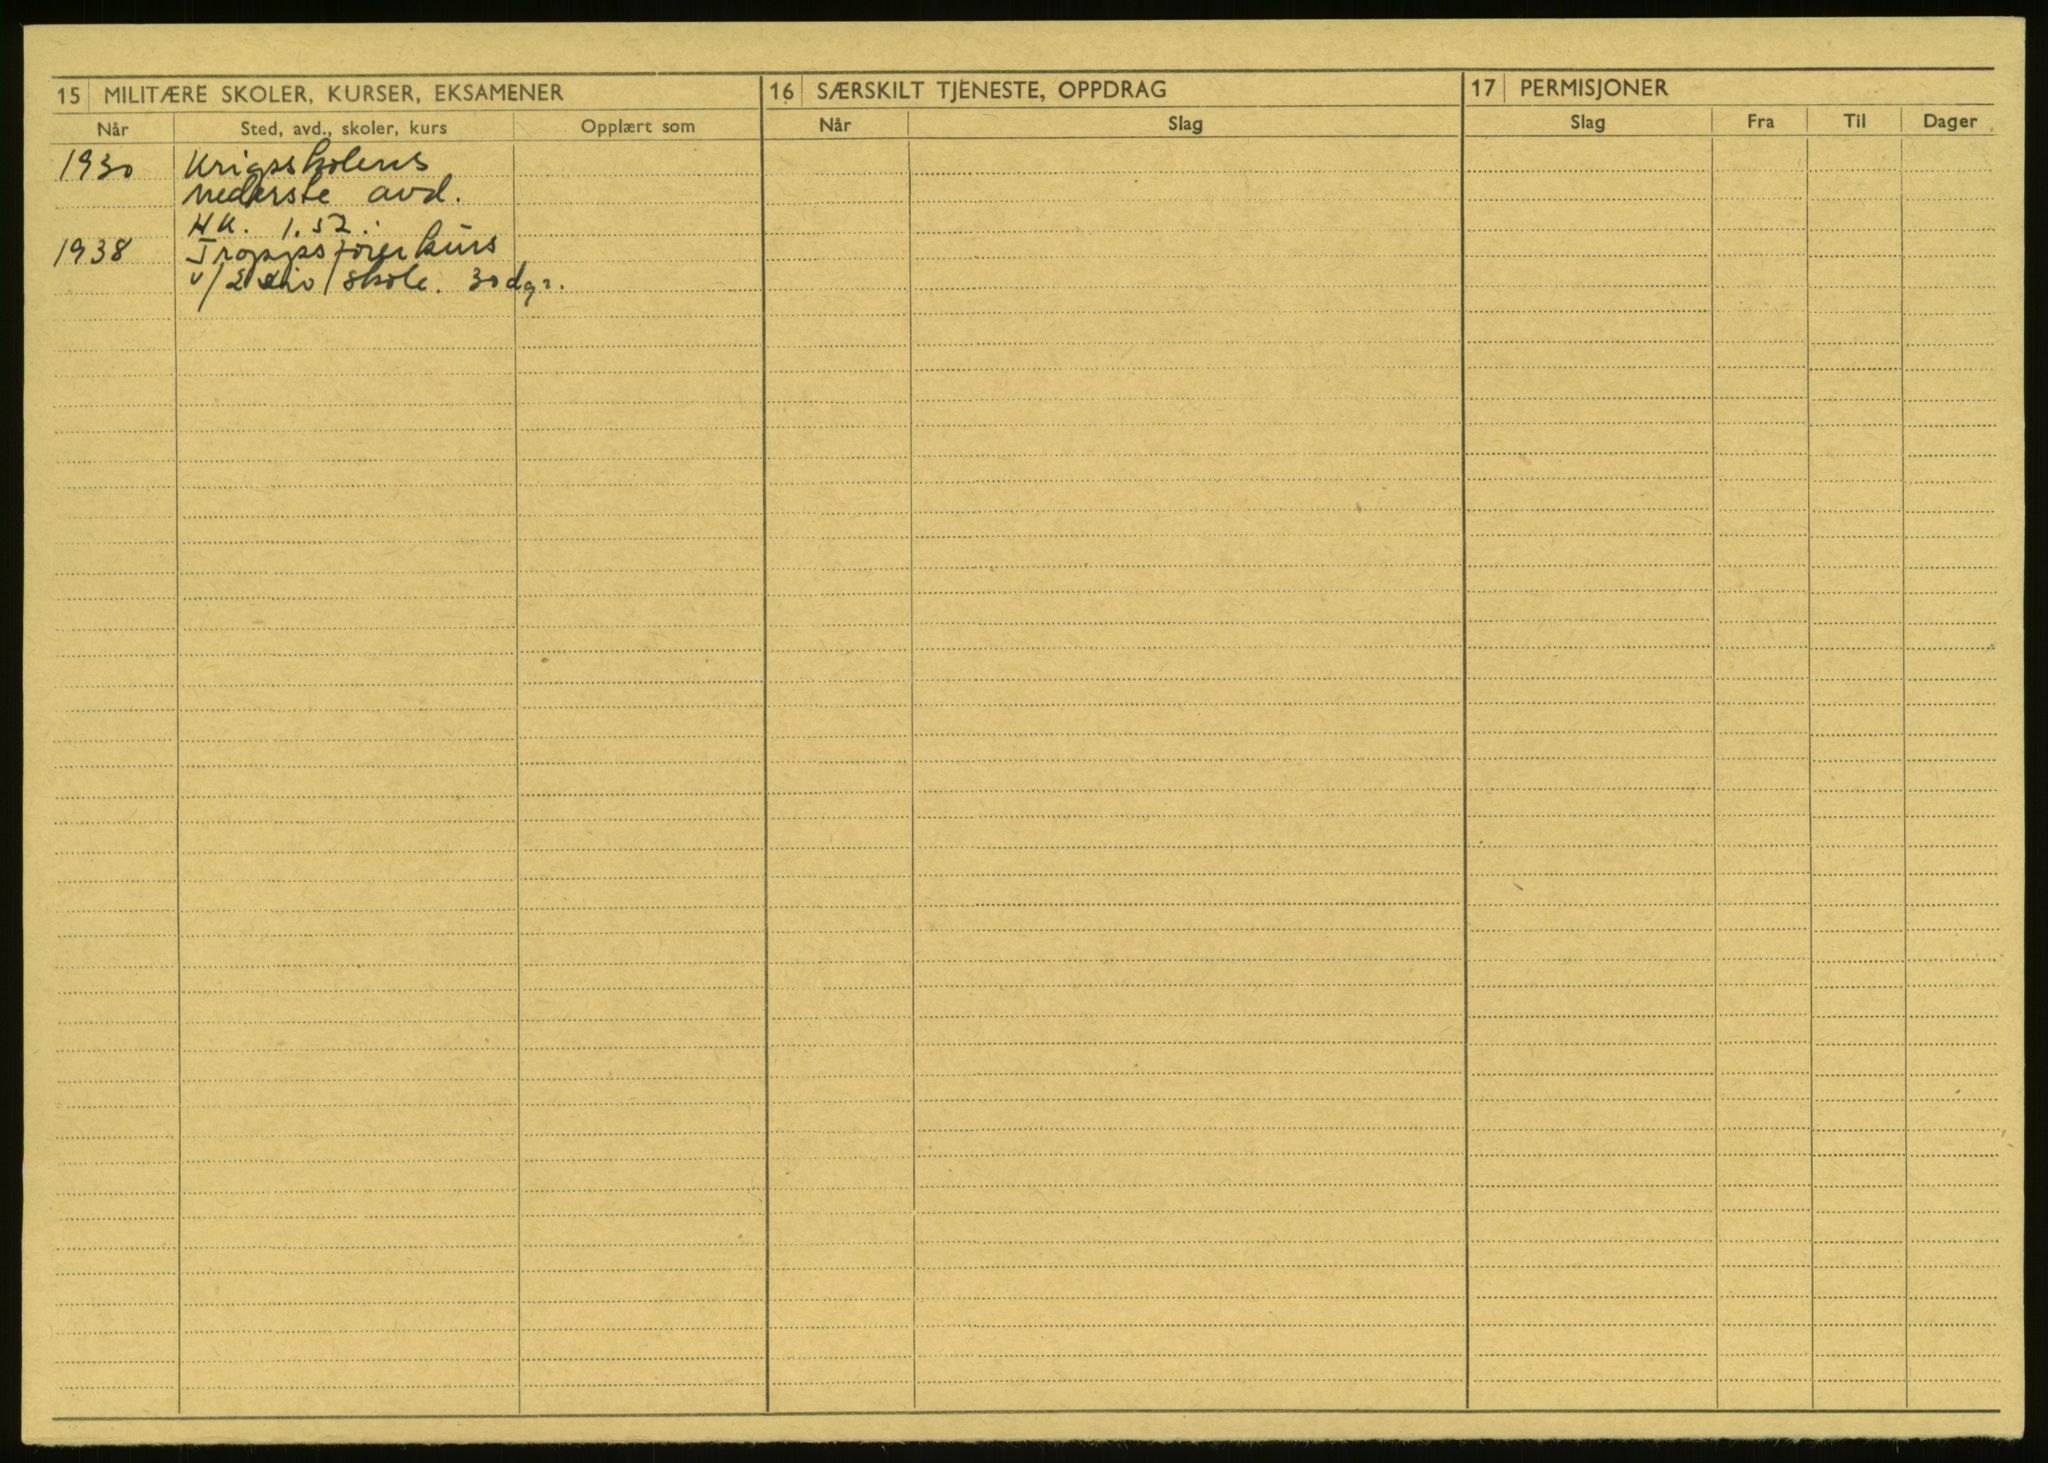 15 MILITÆRE SKOLER, KURSER, EKSAMENER
Når Sted, avd., skoler, kurs Opplært som
1930 Krigsskolens
nederste avd.
HK. 1.52.
1938 Troppsjefkurs
v/2 div skole. 30 dgr.
16 SÆRSKILT TJENESTE, OPPDRAG
Når Slag
17 PERMISJONER
Slag Fra Til Dager